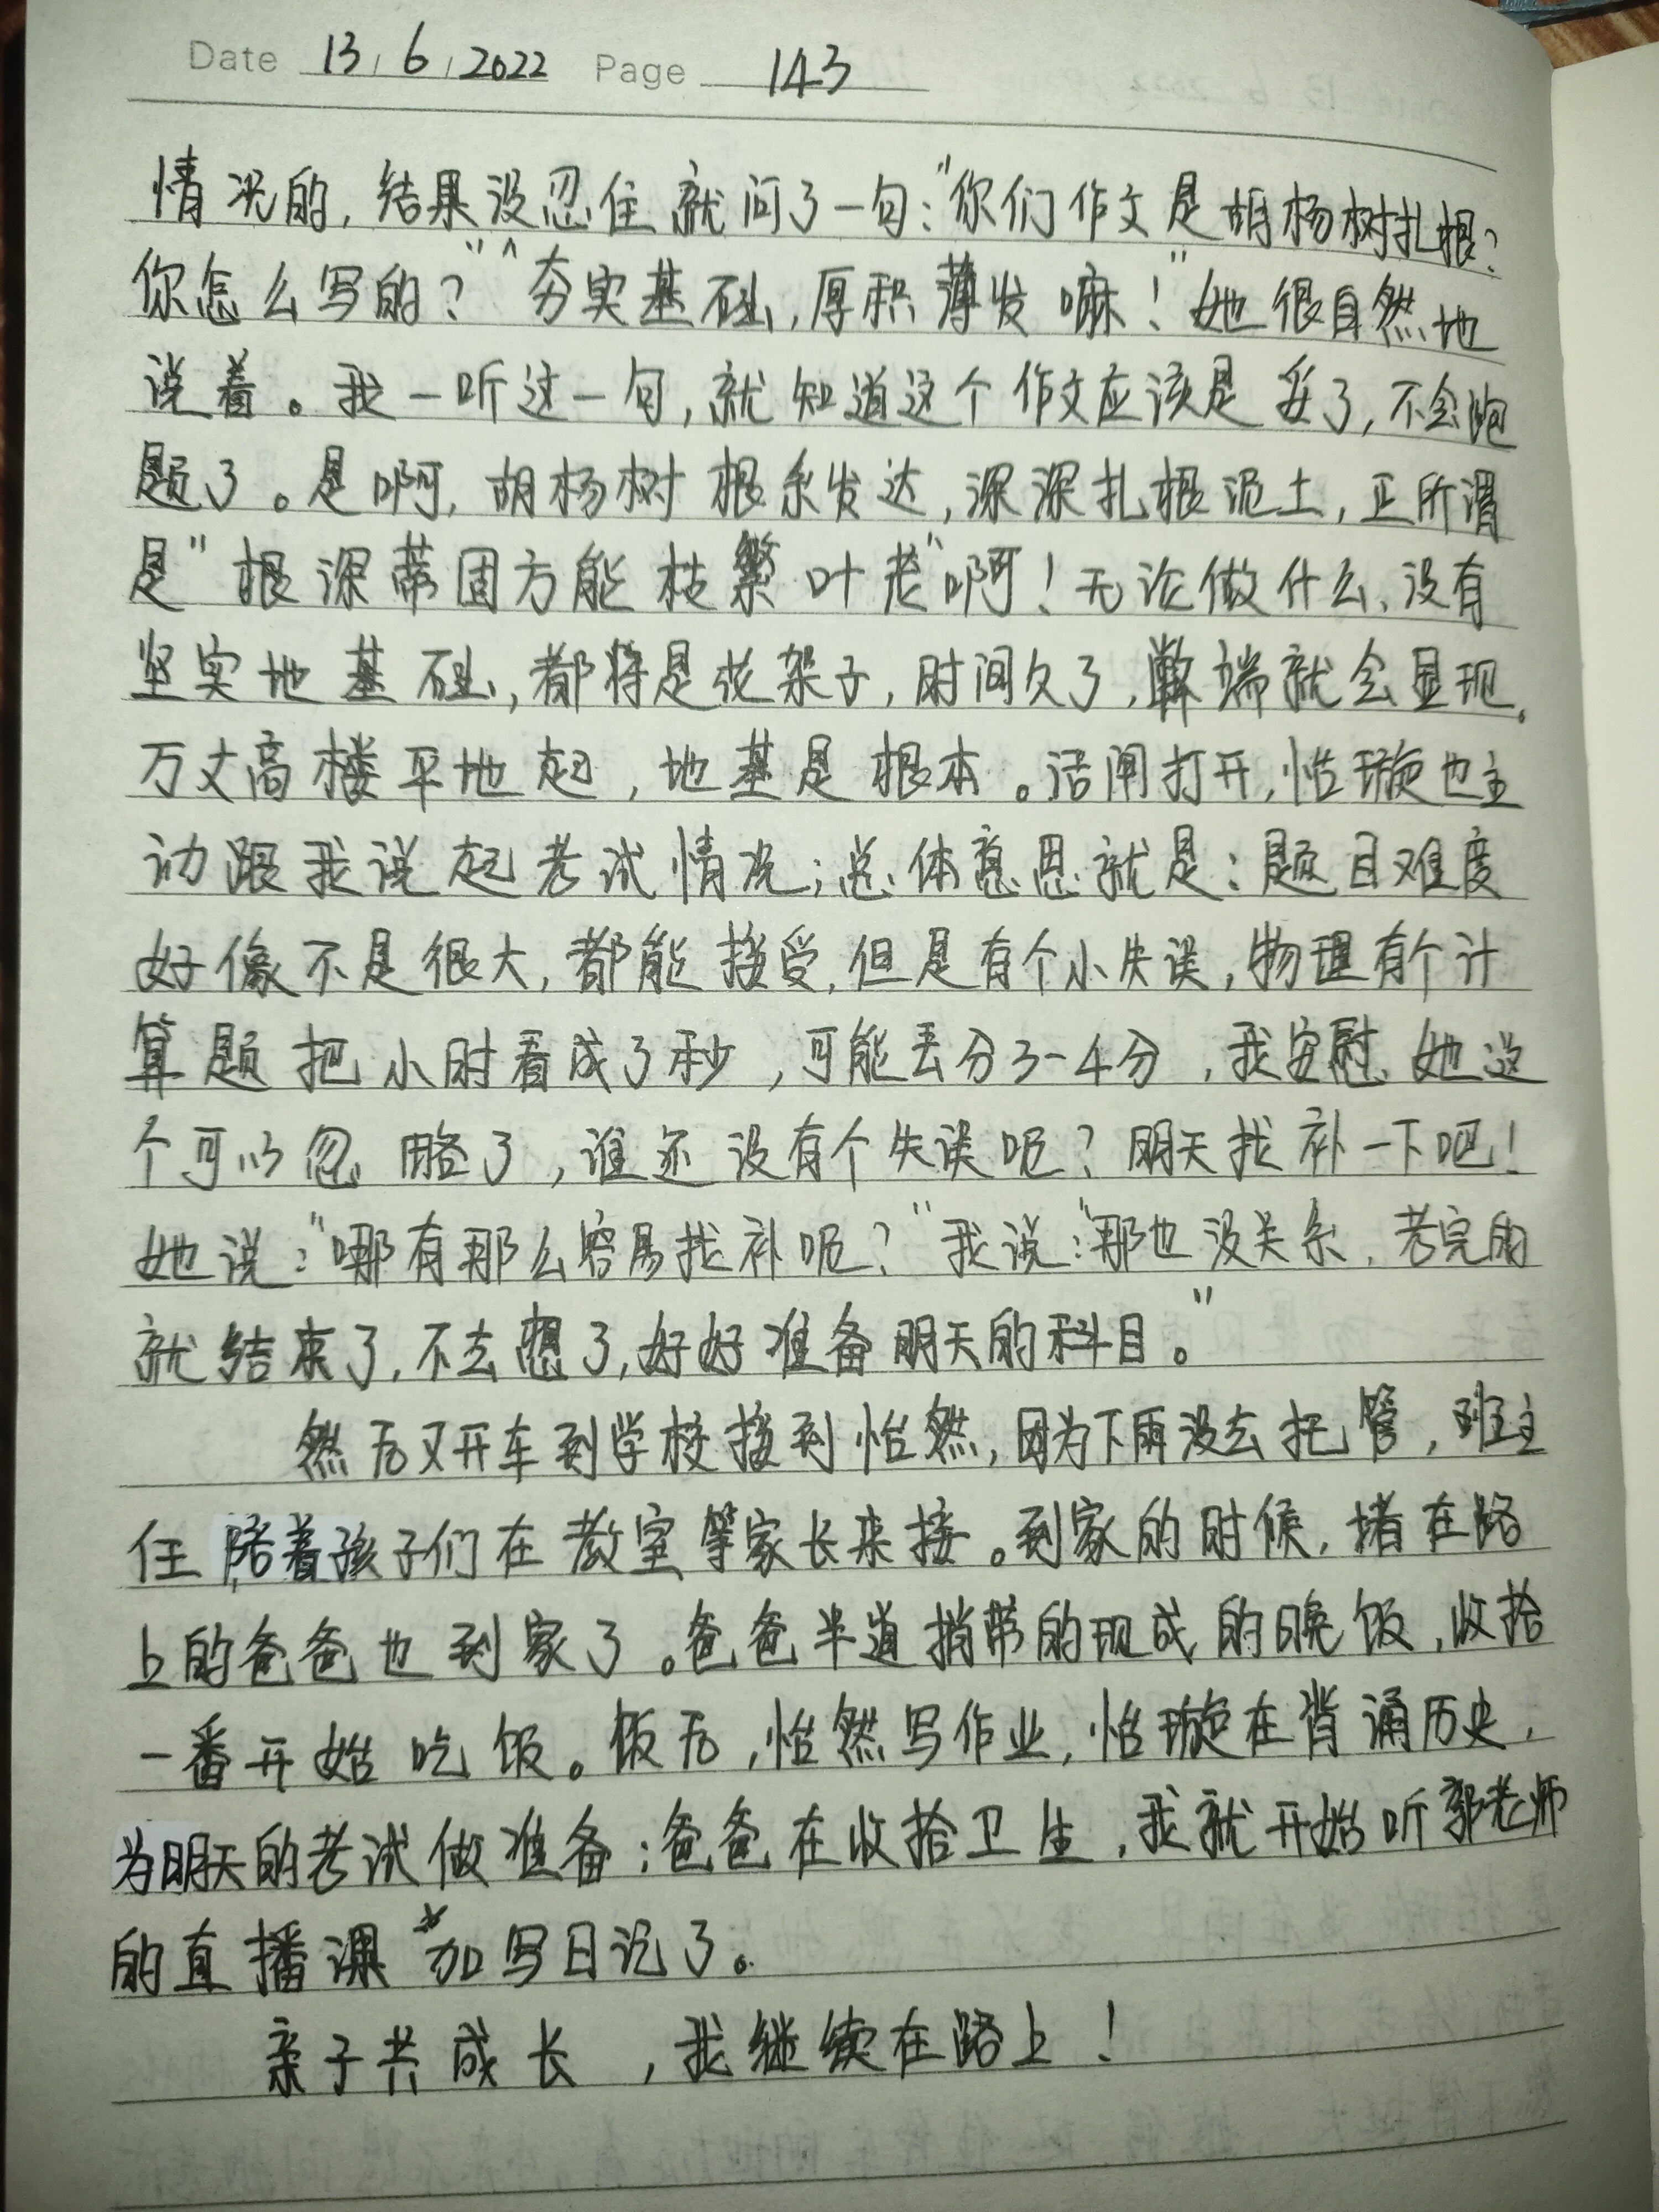 Date 13/6/2022 Page 143
情况的,结果没忍住就问了一句:"你们作文是胡杨树扎根?
你怎么写的?""夯实基础,厚积薄发嘛!"她很自然地
说着。我一听这一句,就知道这个作文应该是妥了,不会跑
题了。是啊,胡杨树根系发达,深深扎根泥土,正所谓
是"根深蒂固方能枝繁叶老"啊!无论做什么,没有
坚实地基础,都将是花架子,时间久了,弊端就会显现。
万丈高楼平地起,地基是根本。话闸打开,怡璇也主
动跟我说起考试情况;总体意思就是:题目难度
好像不是很大,都能接受,但是有个小失误,物理有个计
算题把小时看成了秒,可能丢分3-4分,我安慰她这
个可以忽略了,谁还没有个失误呢?明天找补一下吧!
她说:"哪有那么容易找补呢?"我说:"那也没关系,考完的
就结束了,不去想了,好好准备明天的科目。"
然后又开车到学校接到怡然,因为下雨没去托管,班主
任陪着孩子们在教室等家长来接。到家的时候,堵在路
上的爸爸也到家了。爸爸半道捎带的现成的晚饭,收拾
一番开始吃饭。饭后,怡然写作业,怡璇在背诵历史,
为明天的考试做准备;爸爸在收拾卫生,我就开始听郭老师
的直播课加写日记了。
亲子共成长,我继续在路上!